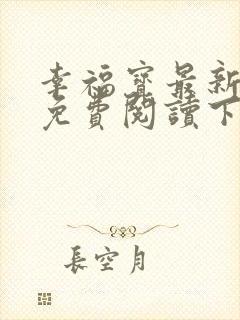 幸福寶最新
免費閱讀下
長空月